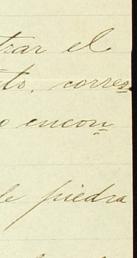 trar el
to, corres-
o encon-
le piedra